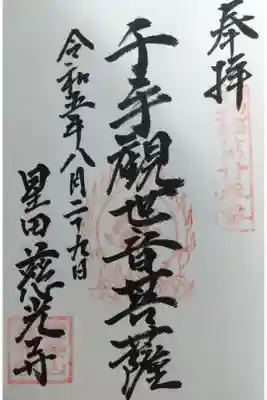 奉拝
千手観世音菩薩
令和五年八月二十九日
星田慈光寺